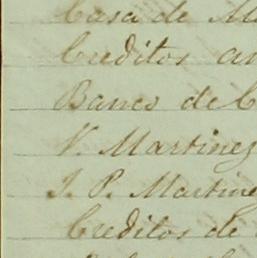 Casa de M
Creditos an
Banco de C
V. Martinez
J. P. Martine
Creditos de